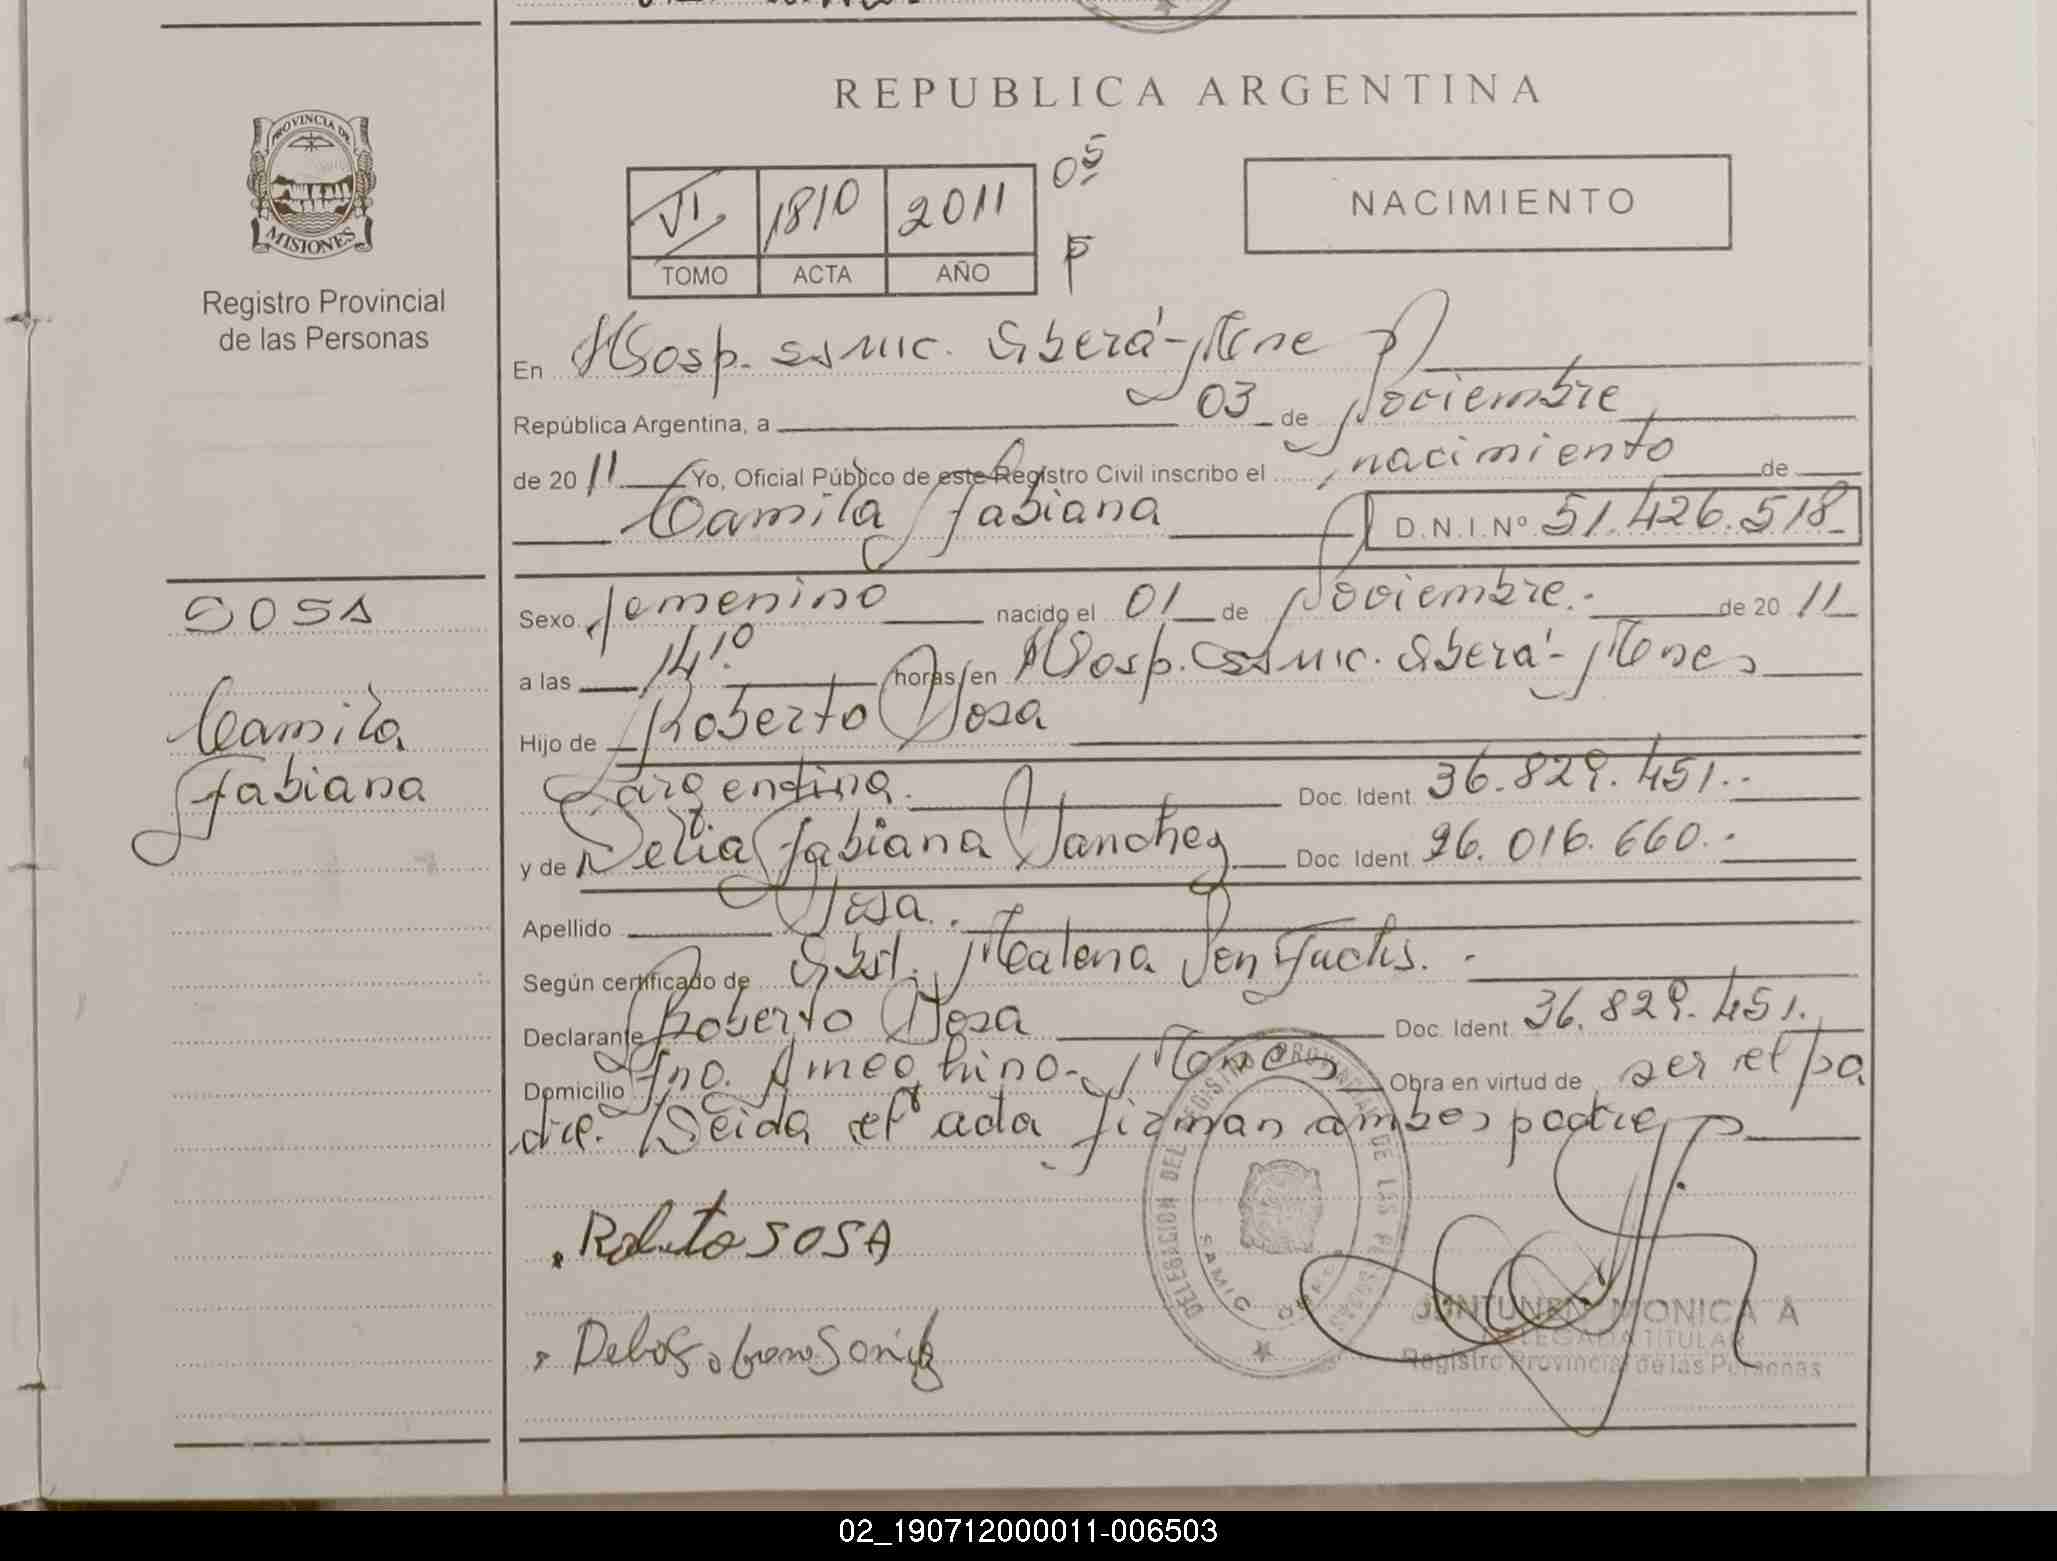 REPUBLICA ARGENTINA
PROVINCIA DE
MISIONES
Registro Provincial
de las Personas
VI 1810 2011 05
TOMO ACTA AÑO
NACIMIENTO
En Hosp. ssmic. Oberá - Mnes
República Argentina, a 03 de Noviembre
de 2011 Yo, Oficial Público de este Registro Civil inscribo el nacimiento de
Camila Fabiana D.N.I.Nº 51.426.518
SOSA
Camila
Fabiana
Sexo femenino nacido el 01 de Noviembre.- de 2011
a las 14,10 horas en Hosp. ssmic. Oberá - Mnes
Hijo de Roberto Sosa
argentina. Doc. Ident. 36.829.451.-
y de Delia Fabiana Sanchez Doc. Ident. 96.016.660.-
Apellido Sosa.
Según certificado de Obst. Malena
Declarante Roberto Sosa Doc. Ident. 36.829.451.
Domicilio Fno. Ameghino - Mnes Obra en virtud de ser el pa
dre. Leida el acta firman ambos padres
Roberto SOSA
DELEGACION DEL REGISTRO PROVINCIAL DE LAS PERSONAS
SAMIC OBERA
JUNTUNEN MONICA A
DELEGADA TITULAR
Registro Provincial de las Personas
02_190712000011-006503